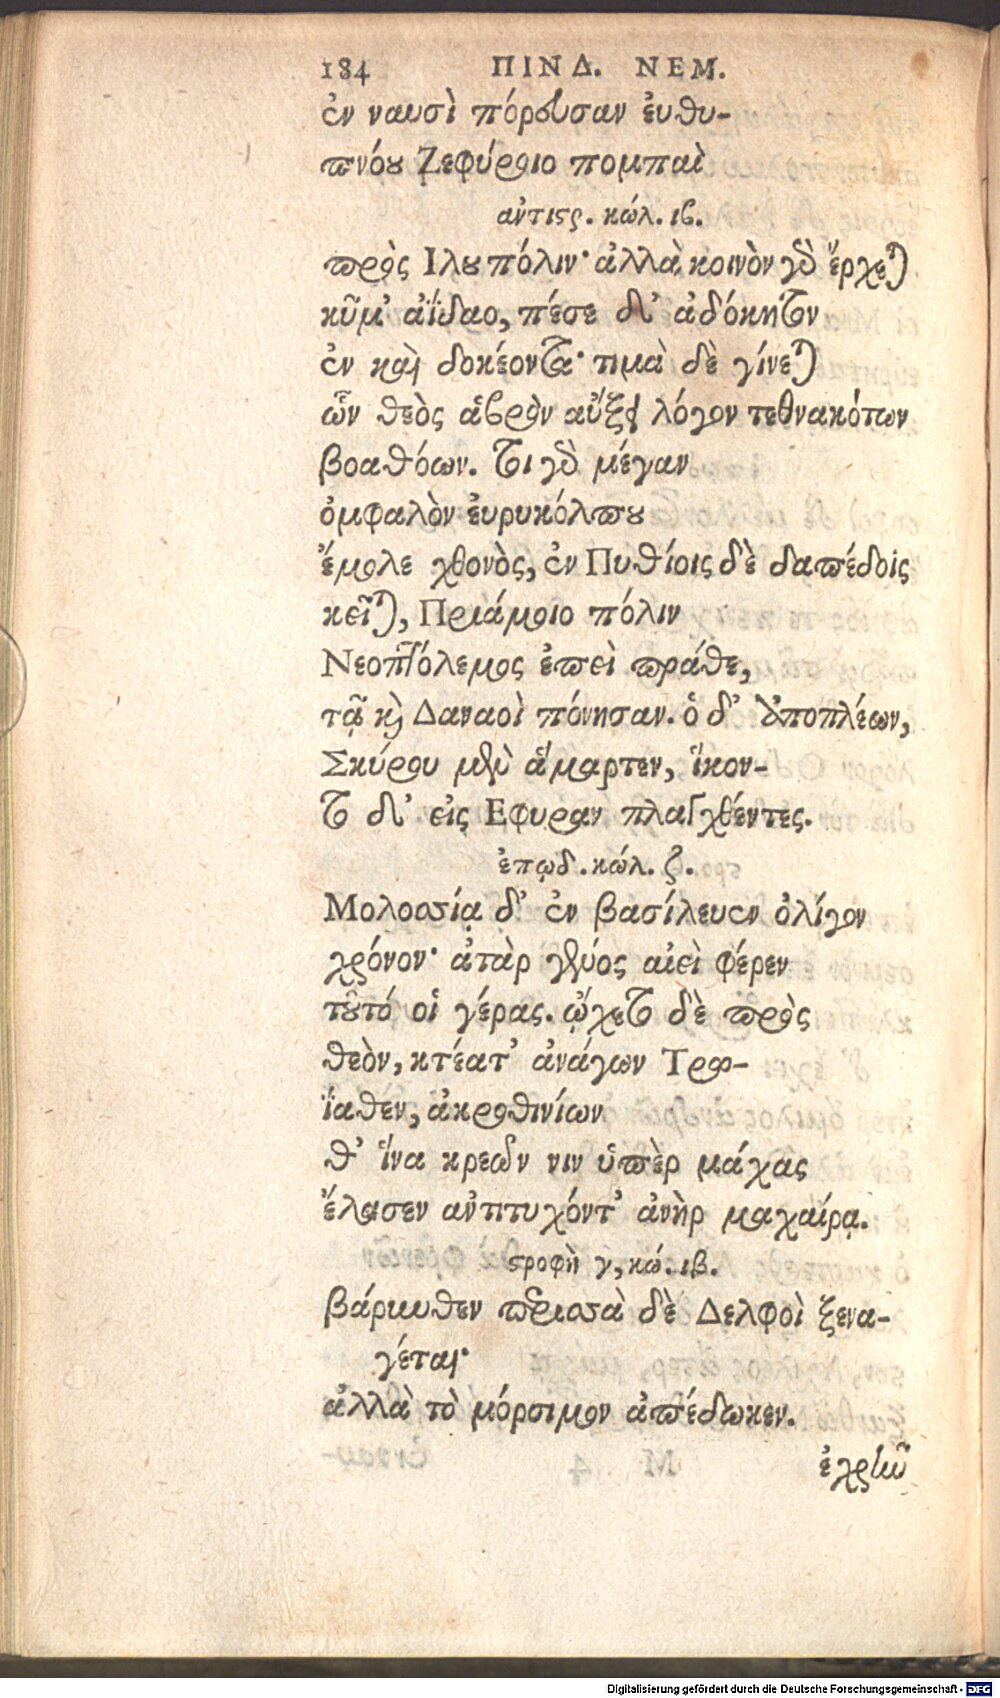 184 ΠΙΝΔ. ΝΕΜ.
ἐν ναυσὶ πόρευσαν ἐυθυ-
πνόου Ζεφύροιο πομπαὶ
ἀντις. κώλ. ιβ.
πρὸς Ιλου πόλιν· ἀλλὰ κοινὸν γὰρ ἔρχεται
κῦμ' ἀΐδαο, πέσε δ' ἀδόκητον
ἐν καὶ δοκέοντα· τιμὰ δὲ γίνεται
ὧν θεὸς ἁβρὸν αὔξει λόγον τεθνακότων
βοαθόων. τοι γὰρ μέγαν
ὀμφαλὸν ἐυρυκόλπου
ἔμολε χθονὸς, ἐν Πυθίοις δὲ δαπέδοις
κεῖται, Πριάμοιο πόλιν
Νεοπτόλεμος ἐπεὶ πράθε,
τᾷ καὶ Δαναοὶ πόνησαν. ὁ δ' ἀποπλέων,
Σκύρου μὲν ἅμαρτεν, ἵκον-
το δ' εἰς Εφυραν πλαγχθέντες.
ἐπῳδ. κώλ. ζ.
Μολοσσίᾳ δ' ἐν βασίλευεν ὀλίγον
χρόνον· ἀτὰρ γένος αἰεὶ φέρεν
τοῦτό οἱ γέρας. ᾤχετο δὲ πρὸς
θεὸν, κτέατ' ἀνάγων Τρω-
ΐαθεν, ἀκροθινίων
θ' ἵνα κρεῶν νιν ὑπὲρ μάχας
ἔλασεν ἀντιτυχόντ' ἀνὴρ μαχαίρᾳ.
ςροφὴ γ, κώ. ιβ.
βάρυνθεν περισσὰ δὲ Δελφοὶ ξενα-
γέται·
ἀλλὰ τὸ μόρσιμον ἀπέδωκεν.
ἐχρῆν
Digitalisierung gefördert durch die Deutsche Forschungsgemeinschaft - DFG